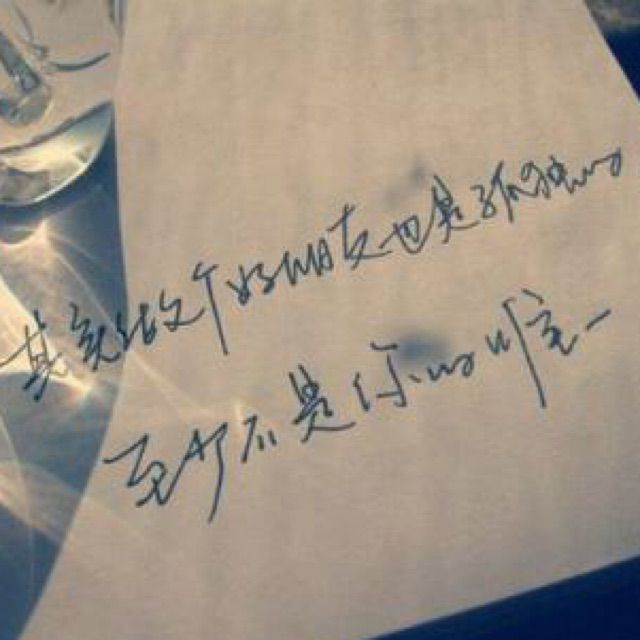 其实做个好朋友也是孤独的
至今不是你的唯一